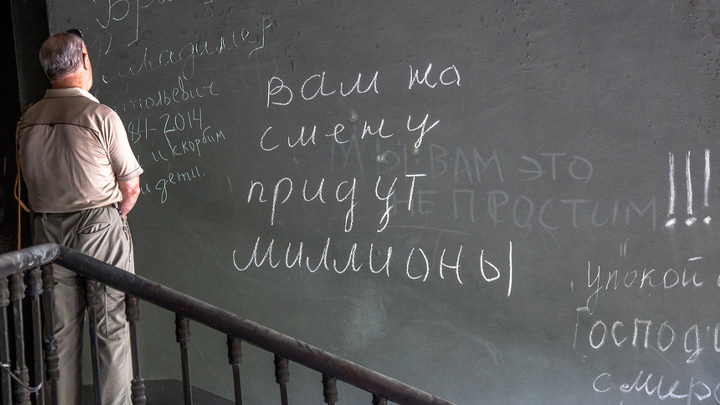 Владимир
84-2014
и скорбим
и дети.
вам на
смену
придут
миллионы
МЫ ВАМ ЭТО
НЕ ПРОСТИМ!!!
упокой
Господ
смир